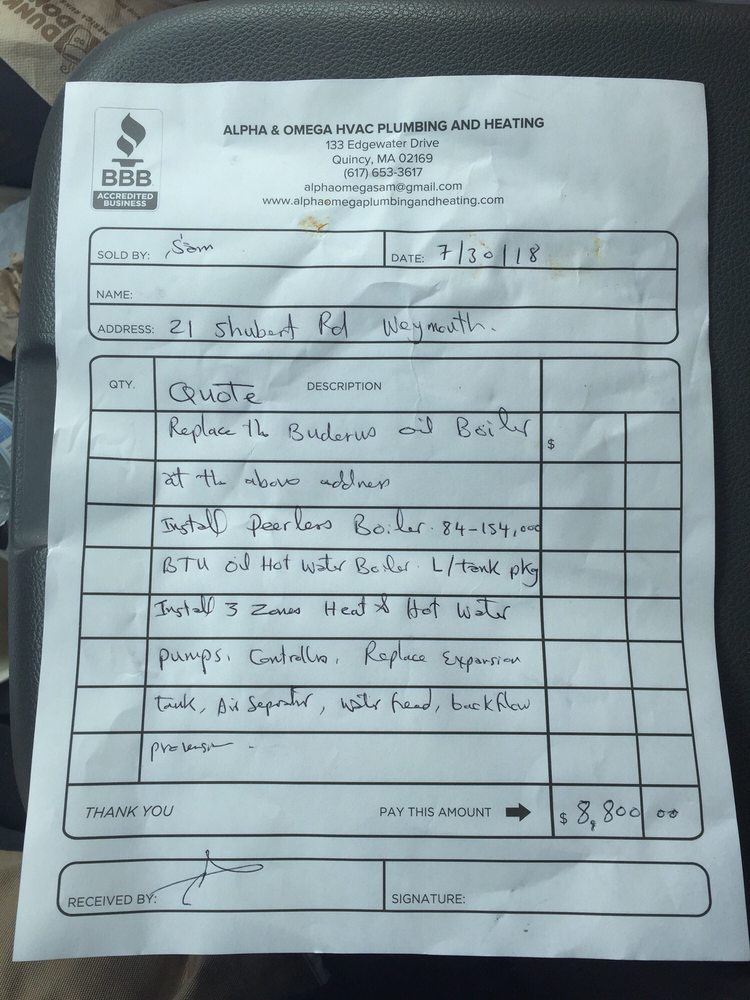 DUNK
DON
BBB
ACCREDITED
BUSINESS
ALPHA & OMEGA HVAC PLUMBING AND HEATING
133 Edgewater Drive
Quincy, MA 02169
(617) 653-3617
alphaomegasam@gmail.com
www.alphaomegaplumbingandheating.com
SOLD BY: Sam DATE: 7/30/18
NAME:
ADDRESS: 21 Shubert Rd Weymouth.
QTY. Quote DESCRIPTION
Replace the Buderus oil Boiler $
at the above address
Install Peerless Boiler. 84-154,000
BTU oil Hot Water Boiler. L/tank pkg
Install 3 Zones Heat & Hot Water
pumps, Controllers, Replace Expansion
tank, Air Seprator, water feed, backflow
THANK YOU PAY THIS AMOUNT $ 8,800 00
RECEIVED BY: SIGNATURE: